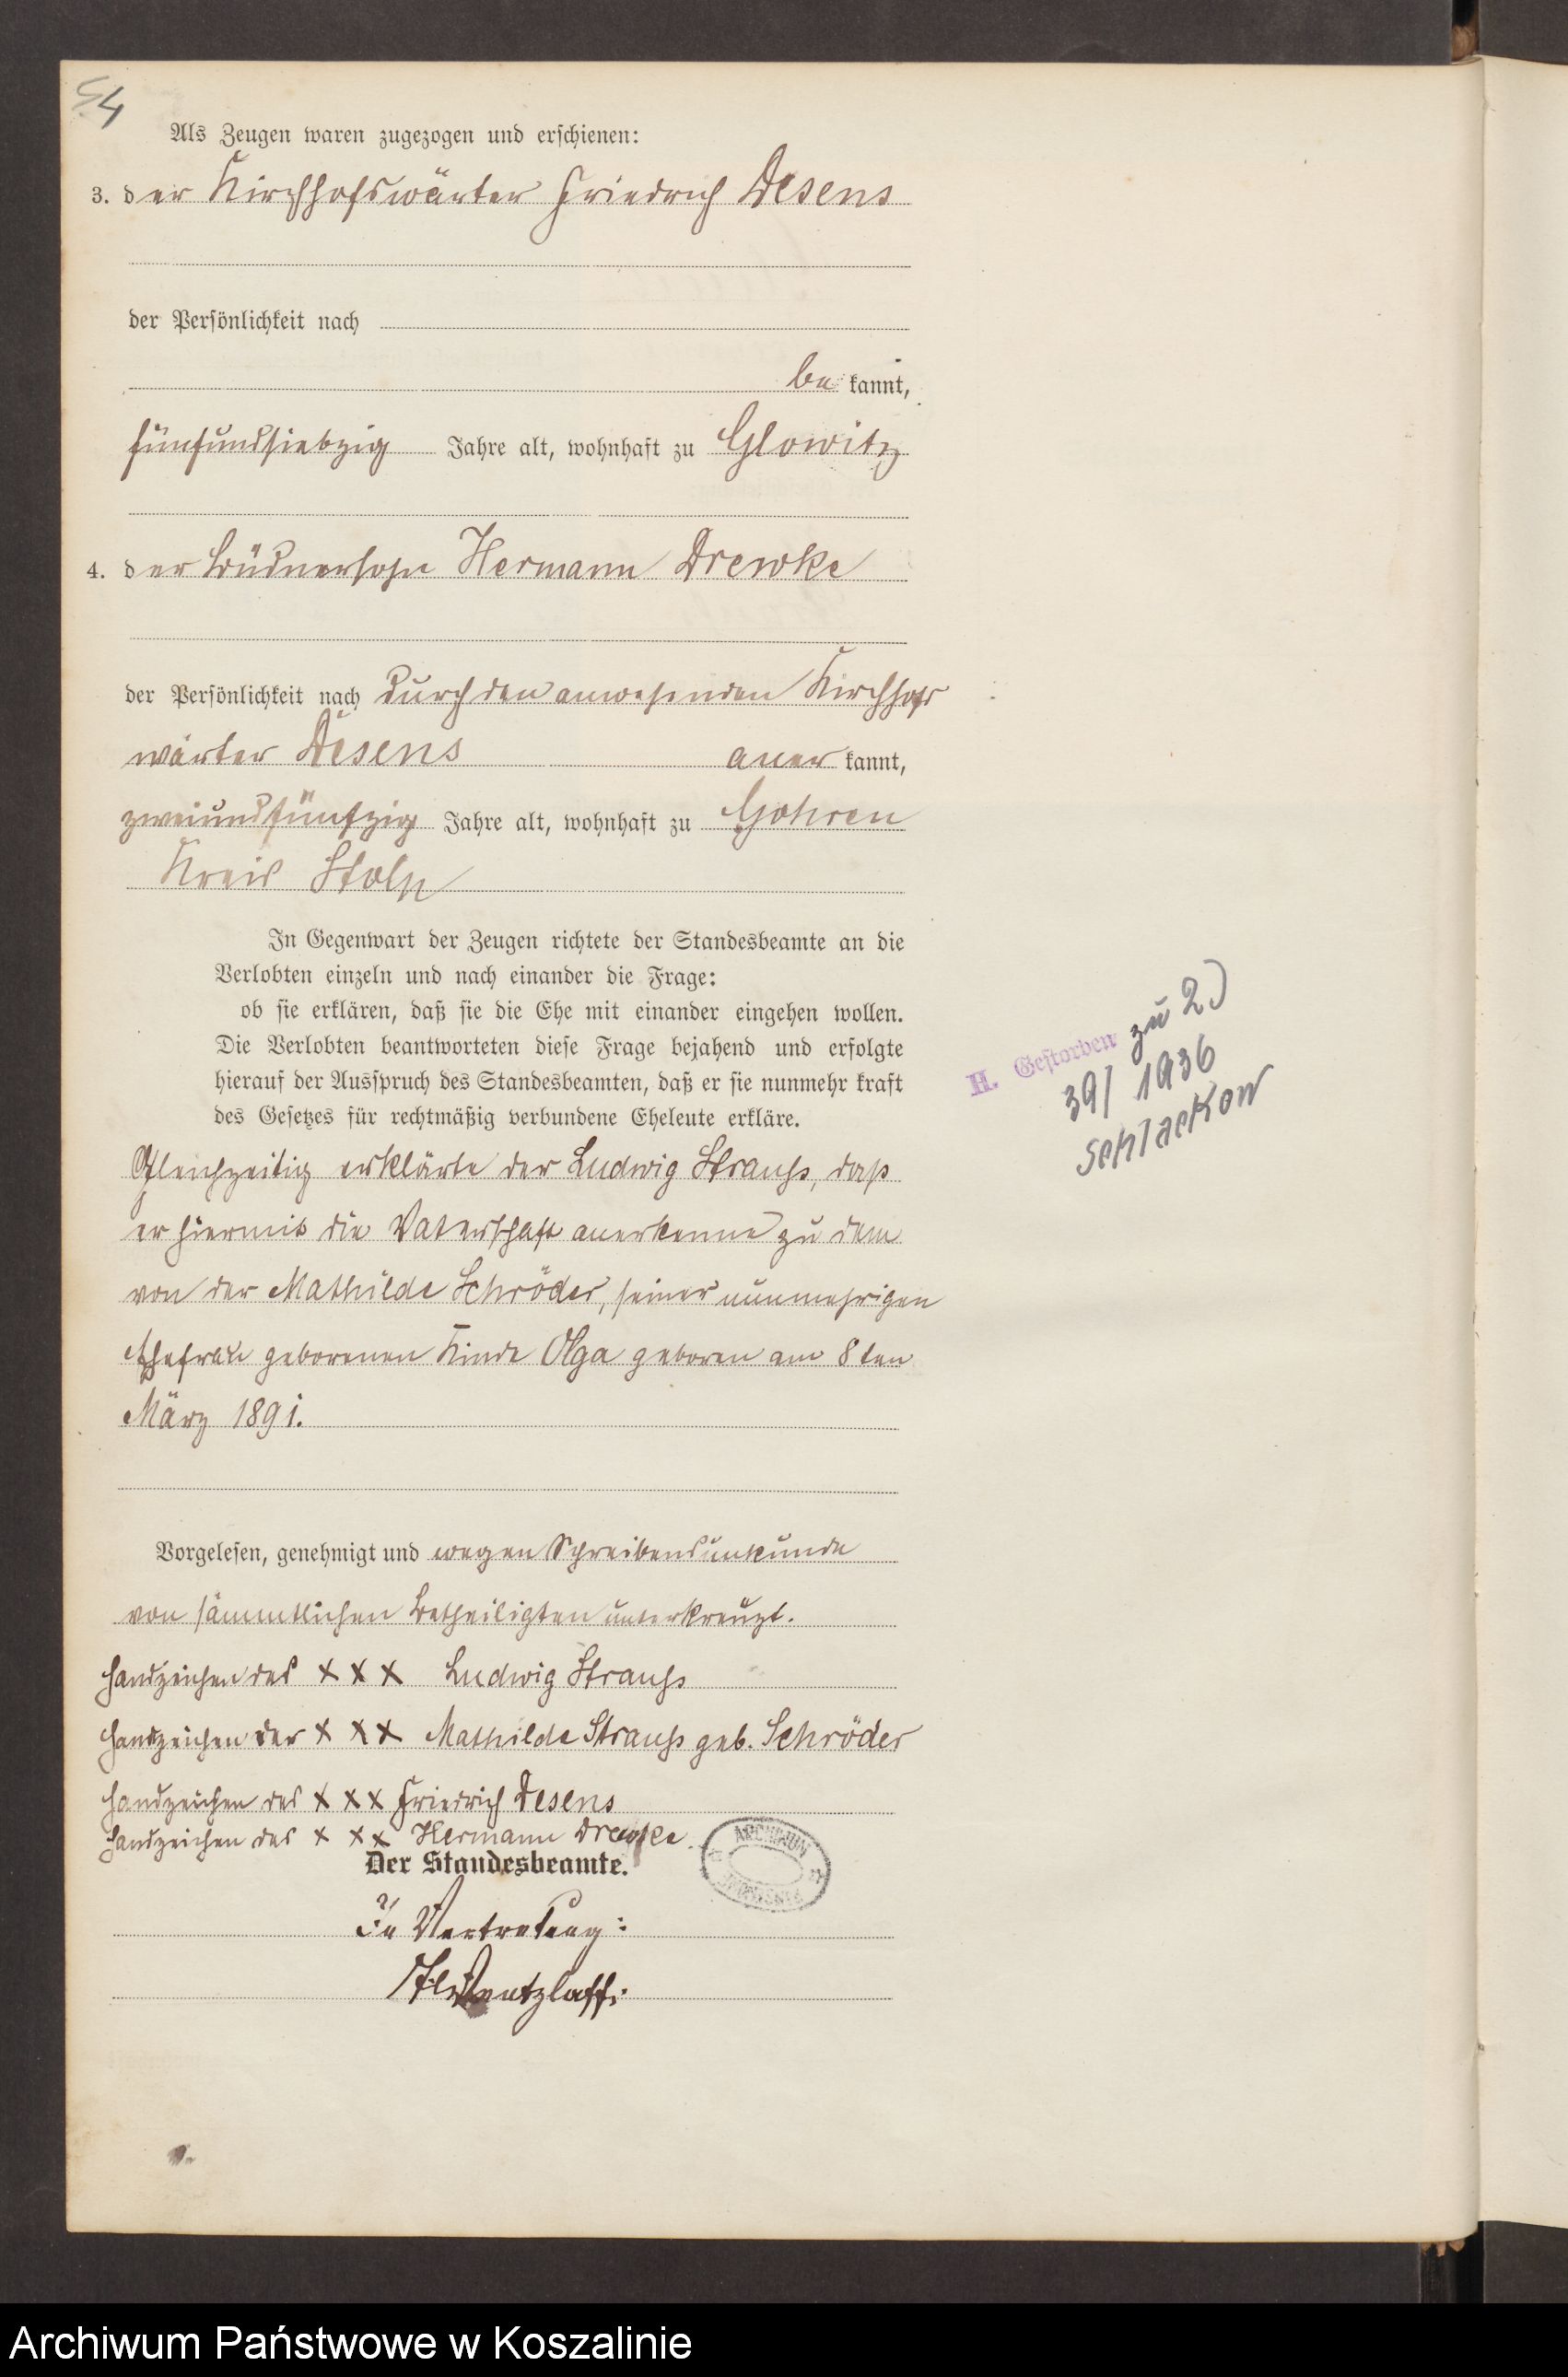 54
Als Zeugen waren zugezogen und erschienen:
3. der Kirchhofswärter Friedrich Desens
der Persönlichkeit nach
bekannt,
fünfundsiebzig Jahre alt, wohnhaft zu Glowitz
4. der Büdnersohn Hermann Drewke
der Persönlichkeit nach durch den anwesenden Kirchhofs
wärter Desens anerkannt,
zweiundfünfzig Jahre alt, wohnhaft zu Gohren
Kreis Stolp
In Gegenwart der Zeugen richtete der Standesbeamte an die
Verlobten einzeln und nach einander die Frage:
ob sie erklären, daß sie die Ehe mit einander eingehen wollen.
Die Verlobten beantworteten diese Frage bejahend und erfolgte
hierauf der Ausspruch des Standesbeamten, daß er sie nunmehr kraft
des Gesetzes für rechtmäßig verbundene Eheleute erkläre.
H. Gestorben zu 2)
39/ 1936
Schlackow
Gleichzeitig erklärte der Ludwig Strauß, daß
er hiermit die Vaterschaft anerkenne zu dem
von der Mathilde Schröder, seiner nunmehrigen
Ehefrau geborenen Kinde Olga geboren am 8ten
März 1891.
Vorgelesen, genehmigt und wegen Schreibensunkunde
von sämmtlichen Betheiligten unterkreuzt.
Handzeichen des XXX Ludwig Strauß
Handzeichen der XXX Mathilde Strauß geb. Schröder
Handzeichen des XXX Friedrich Desens
Handzeichen des XXX Hermann Drewke
Der Standesbeamte.
ARCHIWUM
In Vertretung:
Wentzlaff.
Archiwum Państwowe w Koszalinie